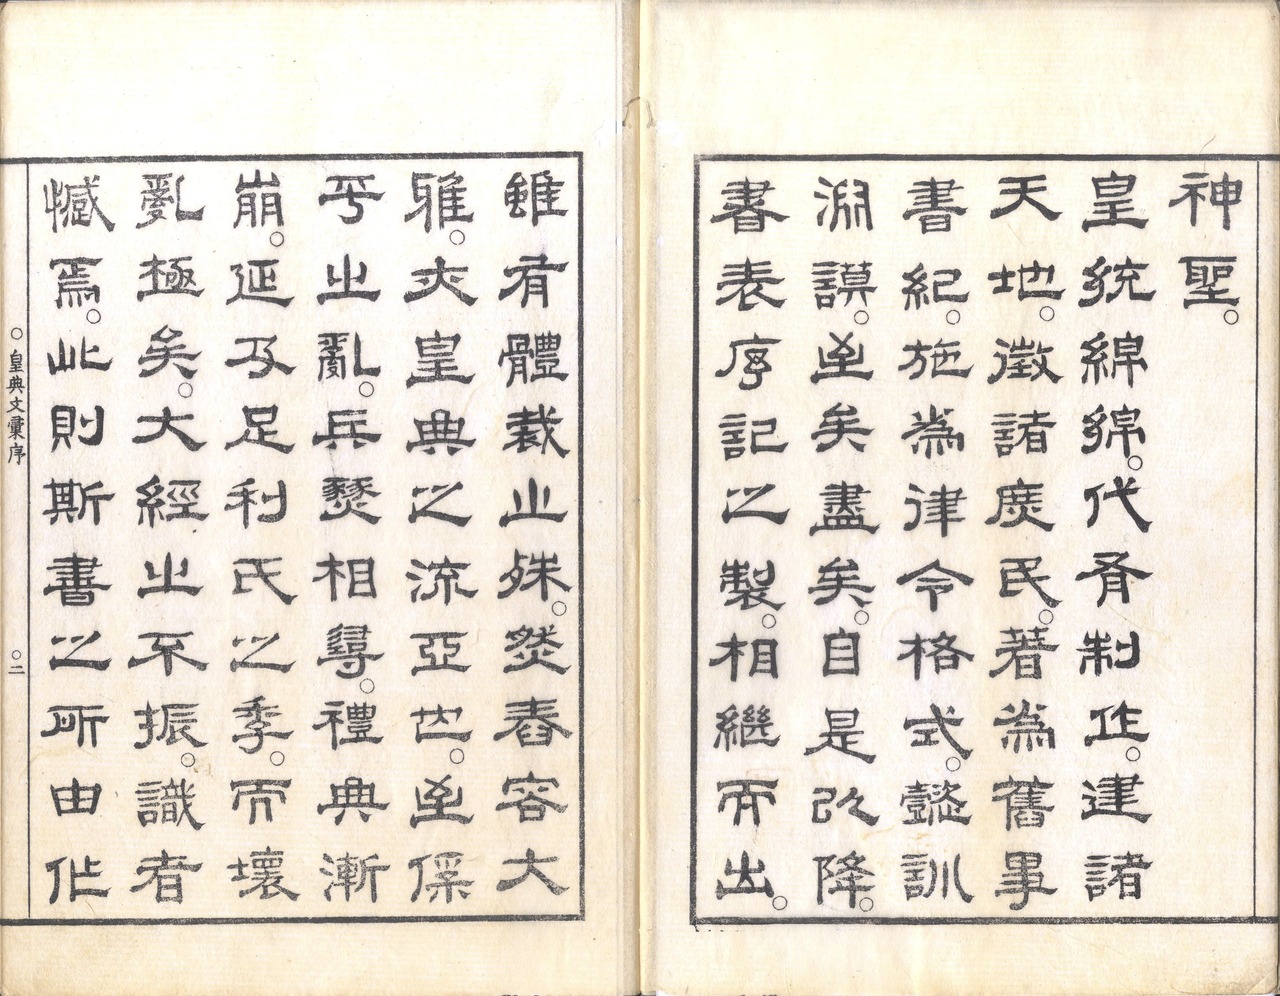 神聖。
皇統綿綿。代有制作。建諸
天地。徵諸庶民。著為舊事
書紀。施為律令格式。懿訓
淵謨。至矣盡矣。自是以降。
書表序記之製。相繼而出。
雖有體裁止殊。然舂容大
雅。亦皇典之流亞也。至保
平之亂。兵燹相尋。禮典漸
崩。延及足利氏之季。而壞
亂極矣。大經之不振。識者
憾焉。此則斯書之所由作
○皇典文彙序 ○二